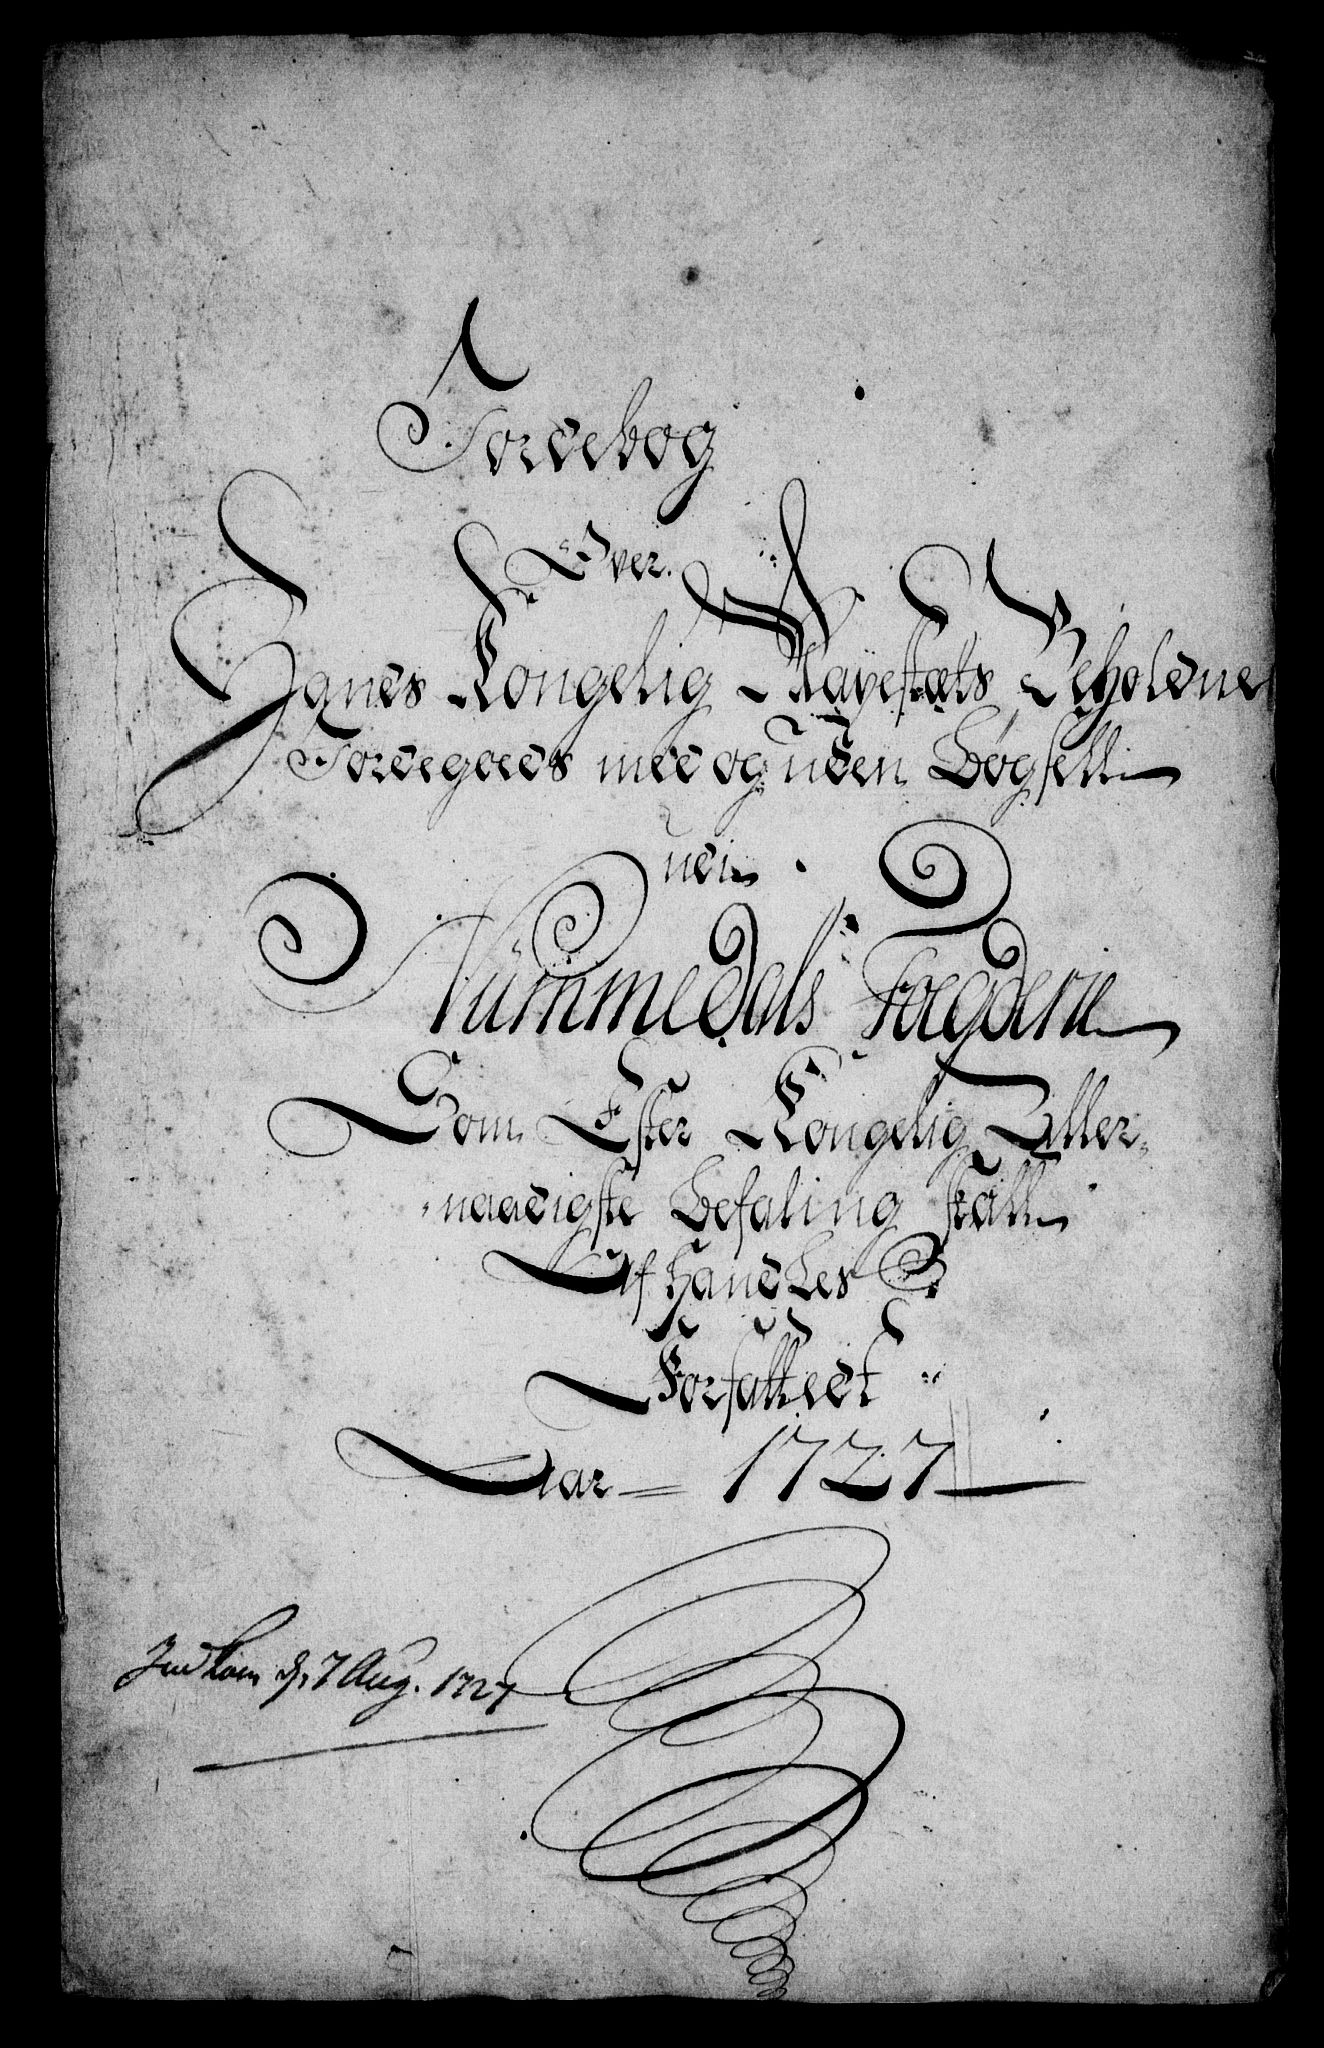 Jordebog
Over
Hanes Kongelig Mayestæts Beholdne
Jordegodes med og uden Bøgsell
udi
Nummedals Foegderie
Som Efter Kongelig Aller
naadigste Befaling skall
Afhandles
Forfattedt
Aar = 1727
Ind kom d. 7 Aug. 1727